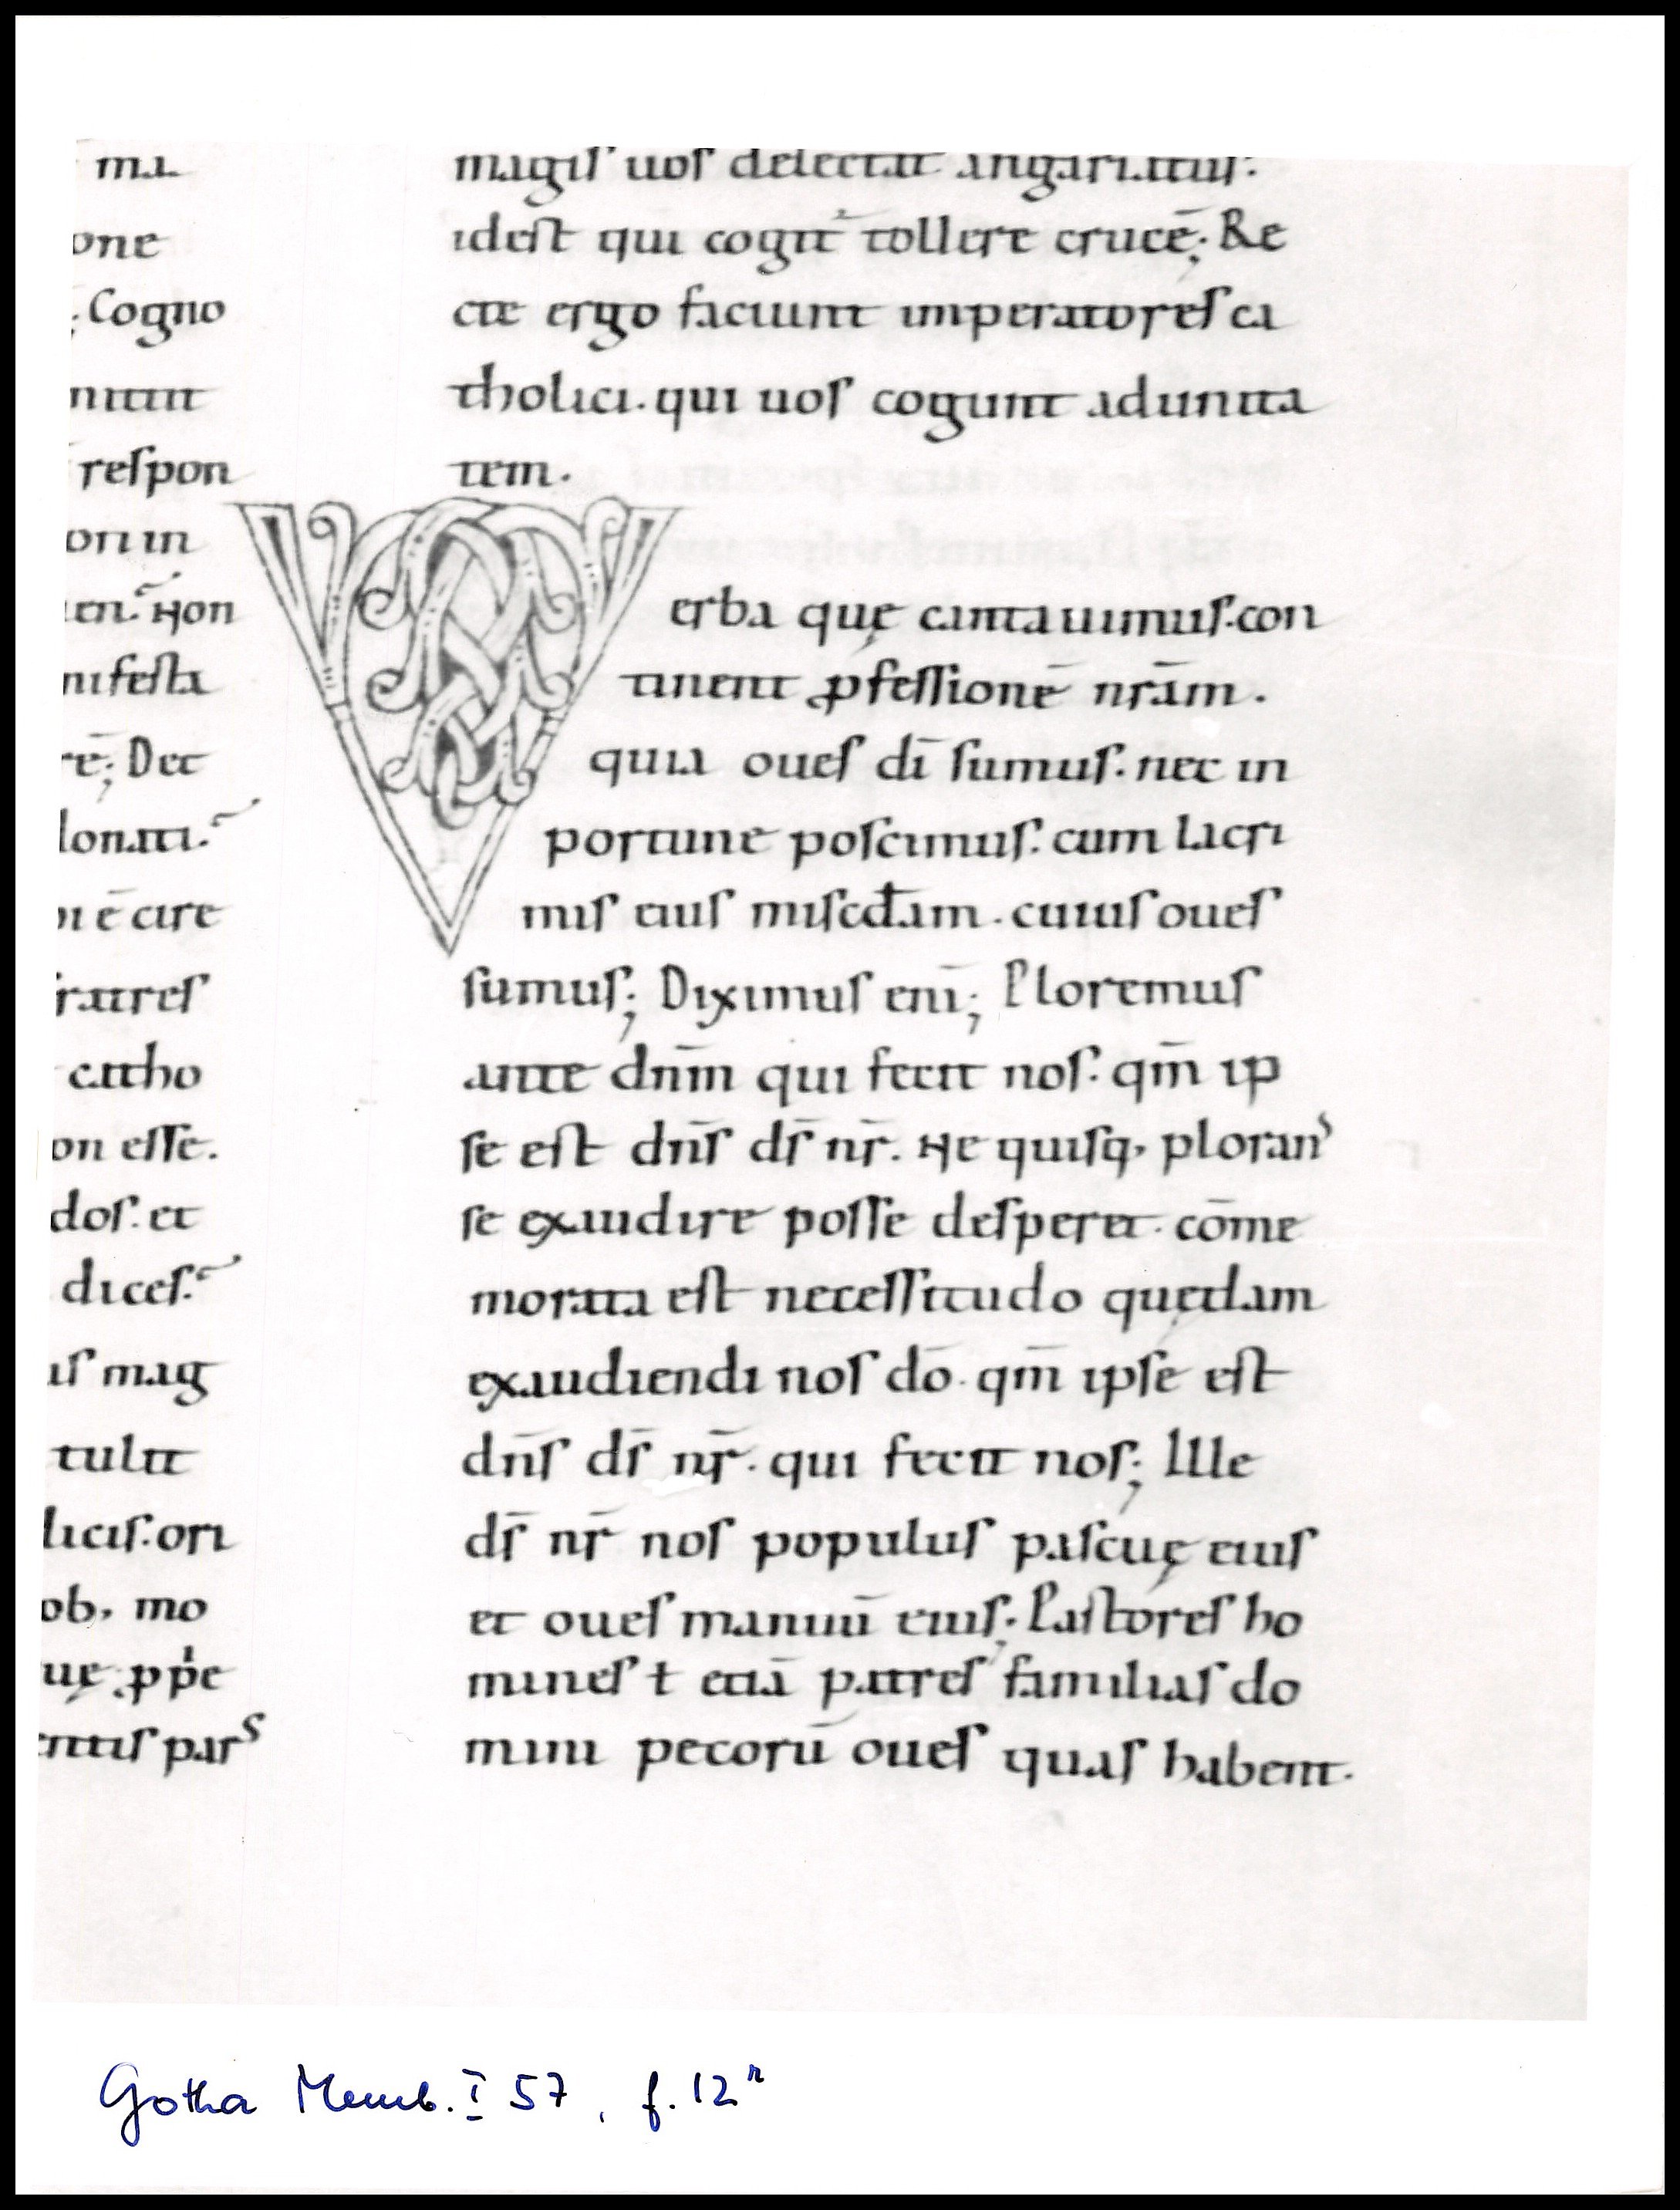 ma
one
. Cogno
nitat
respon
ori in
en. Non
nifesta
rē; Dec
lonati.
ni ē are
fratres
catho
on esse.
dos. et
dices.
is mag
tulit
licis. ori
ob, mo
uę ꝓpe
entis pars
magis uos delectat angariatus:
idest qui cogit tollere crucē; Re
cte ergo faciunt imperatores ca
tholici. qui uos cogunt ad unita
tem.
Verba quę cantauimus. con
tinent ꝓfessionē nr̄am.
quia oues dī sumus. nec in
portune poscimus. cum lacri
mis eius misc̄dam. cuius oues
sumus; Diximus enī; Ploremus
ante dn̄m qui fecit nos. qm̄ ip
se est dn̄s ds̄ nr̄. Ne quisq, ploranˀ
se exaudire posse desperet. cōme
morata est necessitudo quędam
exaudiendi nos dō. qm̄ ipse est
dn̄s ds̄ nr̄. qui fecit nos; Ille
ds̄ nr̄ nos populus pascuę eius
et oues manuū eius; Pastores ho
mines ł etiā patres familias do
mini pecorū oues quas habent.
Gotha Memb. I 57, f. 12ʳ